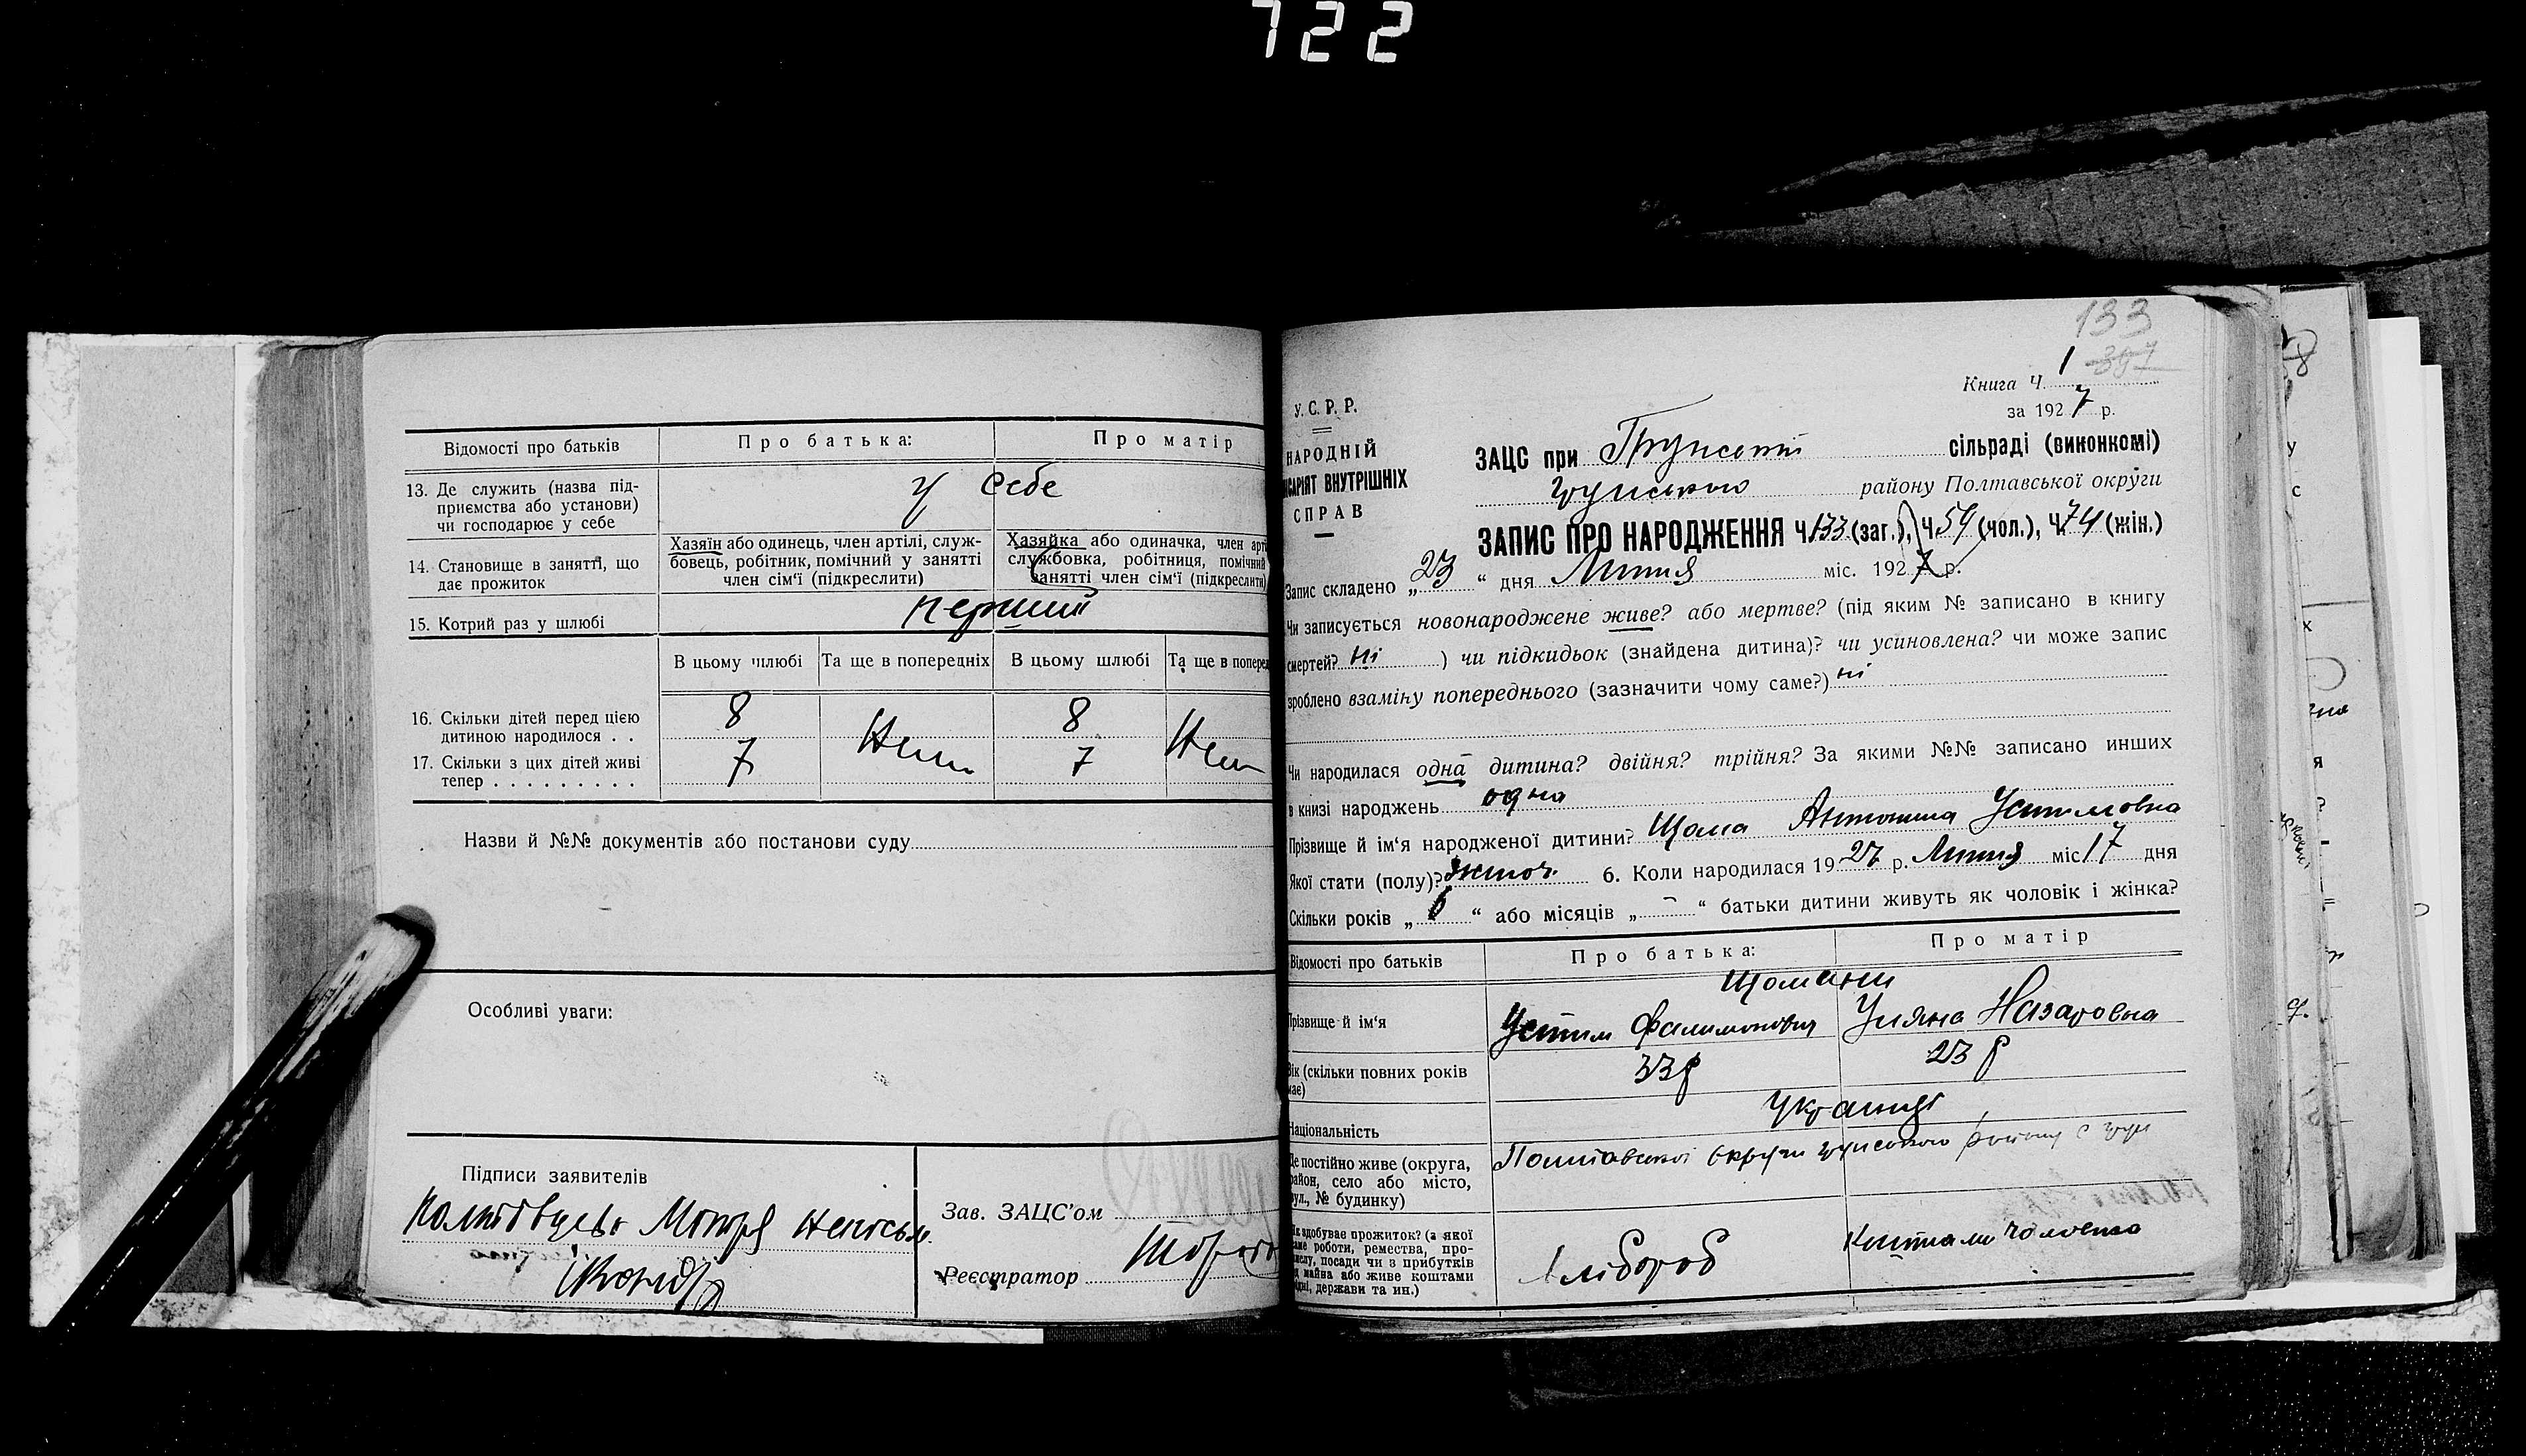 722
Відомості про батьків
Про батька:
Про матір
13. Де служить (назва під-
приємства або установи)
чи господарює у себе
У себе
14. Становище в занятті, що
дає прожиток
Хазяїн або одинець, член артілі, служ-
бовець, робітник, помічний у занятті
член сім'ї (підкреслити)
Хазяйка або одиначка, член арті
службовка, робітниця, помічний
занятті член сім'ї (підкреслити)
15. Котрий раз у шлюбі
перший
В цьому шлюбі
Та ще в попередніх
В цьому шлюбі
Та ще в поперед
16. Скільки дітей перед цією
дитиною народилося . .
8
8
17. Скільки з цих дітей живі
тепер . . . . . . . . .
7
7
Назви й №№ документів або постанови суду
Особливі уваги:
Підписи заявителів
Мотря
Зав. ЗАЦС'ом
Реєстратор
133
Книга Ч. 1
за 1927 р.
У. С. Р. Р.
НАРОДНІЙ
САРІЯТ ВНУТРІШНІХ
СПРАВ
ЗАЦС при сільраді (виконкомі)
району Полтавської округи
ЗАПИС ПРО НАРОДЖЕННЯ Ч 133 (заг.), Ч 59 (чол.), Ч 74 (жін.)
Запис складено „23“ дня Липня міс. 1927 р.
Чи записується новонароджене живе? або мертве? (під яким № записано в книгу
смертей? Ні ) чи підкидьок (знайдена дитина)? чи усиновлена? чи може запис
зроблено взаміну попереднього (зазначити чому саме?) ні
Чи народилася одна дитина? двійня? трійня? За якими №№ записано инших
в книзі народжень одна
Прізвище й ім'я народженої дитини? Щома Антонина Устимовна
Якої стати (полу)? жіноч. 6. Коли народилася 1927 р. Липня міс 17 дня
Скільки років „ “ або місяців „-“ батьки дитини живуть як чоловік і жінка?
Відомості про батьків
Про батька:
Про матір
Прізвище й ім'я
Устим Филимонович
Уляна Назаровна
Вік (скільки повних років
має)
33 р
23 р
Національність
Українці
Де постійно живе (округа,
район, село або місто,
вул., № будинку)
Полтавської округи району с
Як здобуває прожиток? (з якої
саме роботи, ремества, про-
мислу, посади чи з прибутків
майна або живе коштами
рідні, держави та ин.)
Хлібороб
Коштами чоловіка